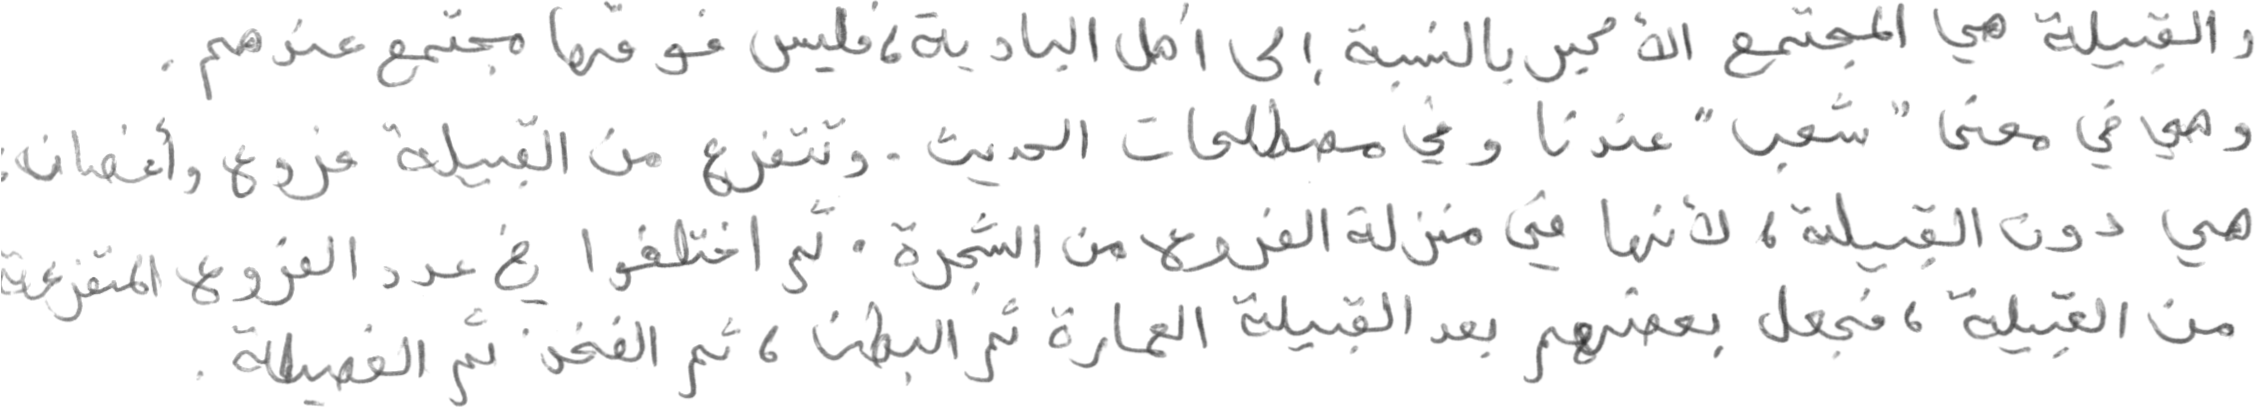 والقبيلة هي المجتمع الأكبر بالنسبة إلى أهل البادية، فليس فوقها مجتمع عندهم.
وهي في معنى "شعب" عندنا وفي مصطلحات الحديث. وتتفرع من القبيلة فروع وأغصان:
هي دون القبيلة، لأنها في منزلة الفروع من الشجرة. ثم اختلفوا في عدد الفروع المتفرعة
من القبيلة، فجعل بعضهم بعد القبيلة العمارة ثم البطن، ثم الفخذ ثم الفصيلة.